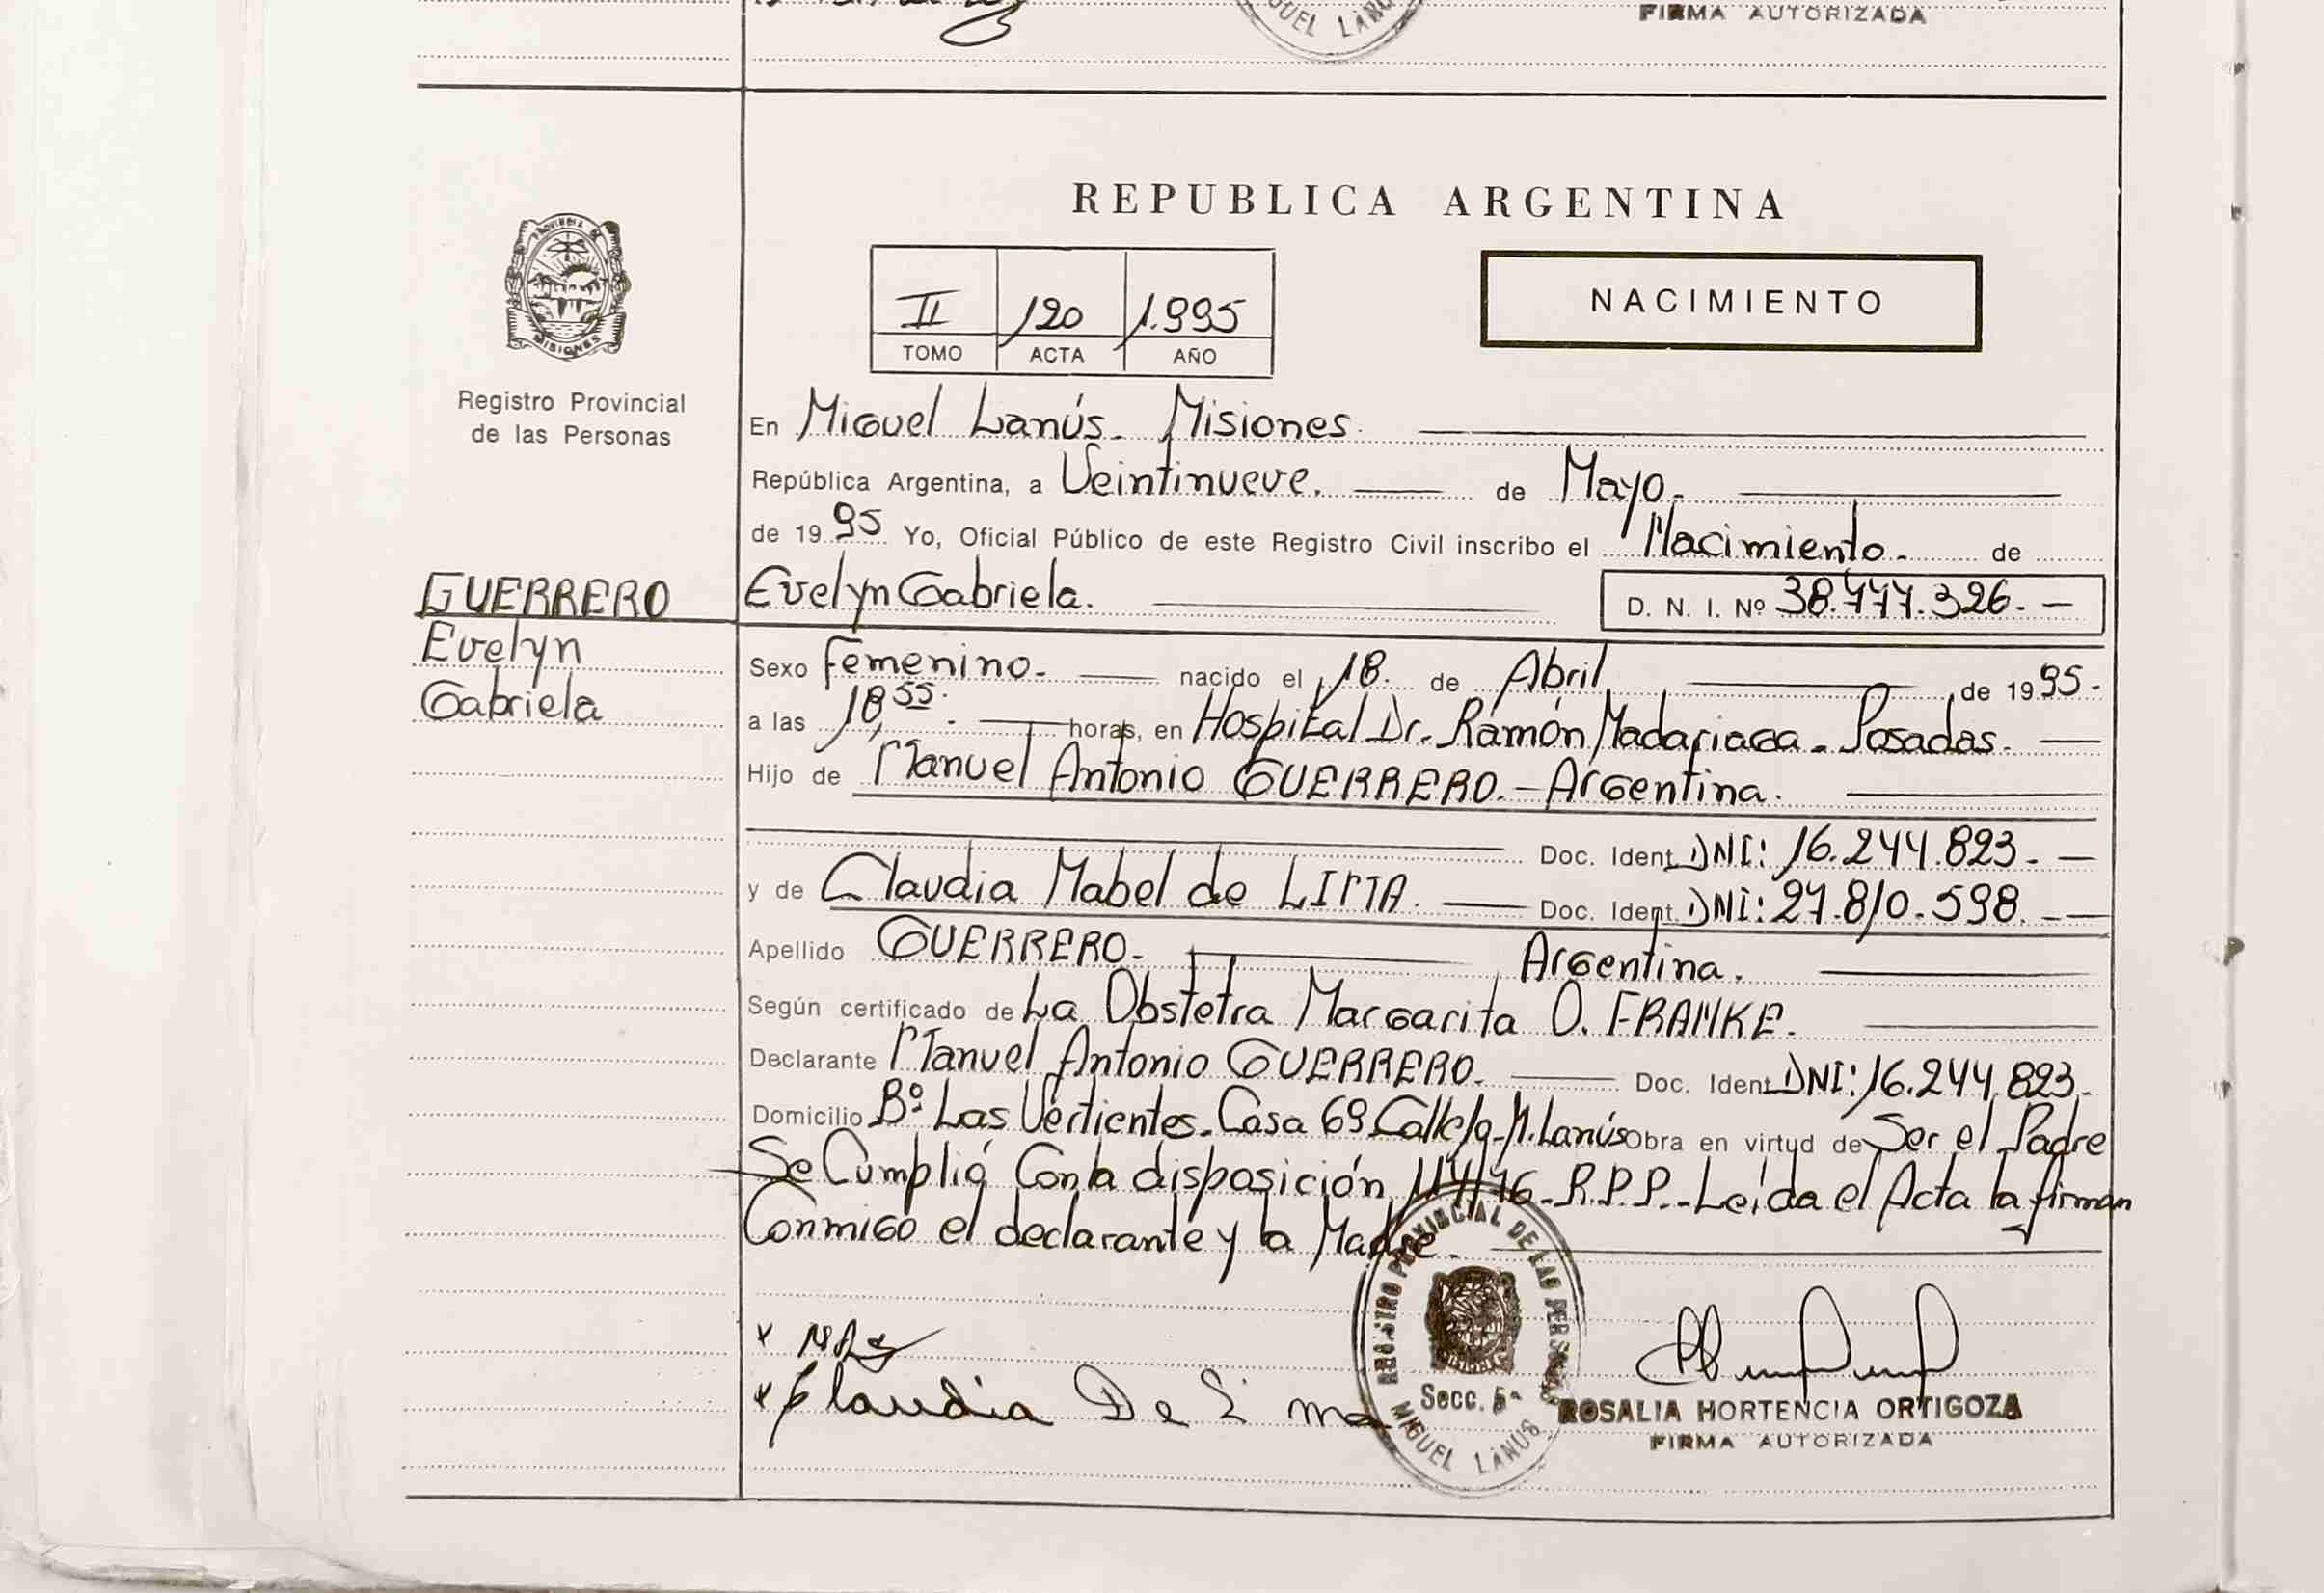 FIRMA AUTORIZADA
REPUBLICA ARGENTINA
PROVINCIA DE
MISIONES
II 120 1.995
TOMO ACTA AÑO
NACIMIENTO
Registro Provincial
de las Personas
En Miguel Lanús. Misiones.
República Argentina, a Veintinueve. de Mayo.
de 1995 Yo, Oficial Público de este Registro Civil inscribo el Nacimiento. de
GUERRERO
Evelyn
Gabriela
Evelyn Gabriela. D. N. I. Nº 38.777.326.-
Sexo Femenino. nacido el 18. de Abril de 1995.
a las 18,55. horas, en Hospital Dr. Ramón Madariaga. Posadas.
Hijo de Manuel Antonio GUERRERO.- Argentina.
Doc. Ident DNI: 16.244.823.
y de Claudia Mabel de LIMA. Doc. Ident. DNI: 27.810.598.
Apellido GUERRERO. Argentina.
Según certificado de La Obstetra Margarita O. FRANKE.
Declarante Manuel Antonio GUERRERO. Doc. Ident DNI: 16.244.823.
Domicilio Bº Las Vertientes. Casa 69 Calle M. Lanús Obra en virtud de Ser el Padre
Se Cumplió Con la disposición 114/76. R.P.P. Leída el Acta la firman
Conmigo el declarante y la Madre.
x
x Claudia De Lima
REGISTRO PROVINCIAL DE LAS PERSONAS
Secc. 5ª
MIGUEL LANUS
ROSALIA HORTENCIA ORTIGOZA
FIRMA AUTORIZADA